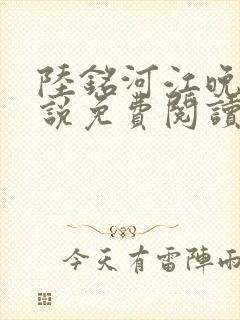 陸銘河江晚
說免費閱讀
今天有雷陣雨